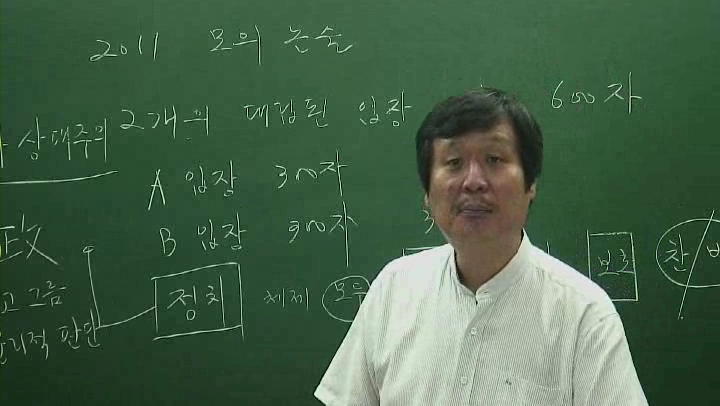 2011 모의 논술
상대주의 2개의 대립된 입장 600자
A 입장 300자
B 입장 300자
政 찬
고 그름 정치 체제
윤리적 판단